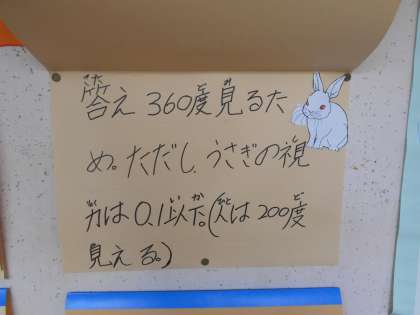 答え 360度見るた
め。ただし、うさぎの視
力は0.1以下。(人は200度
見える。)